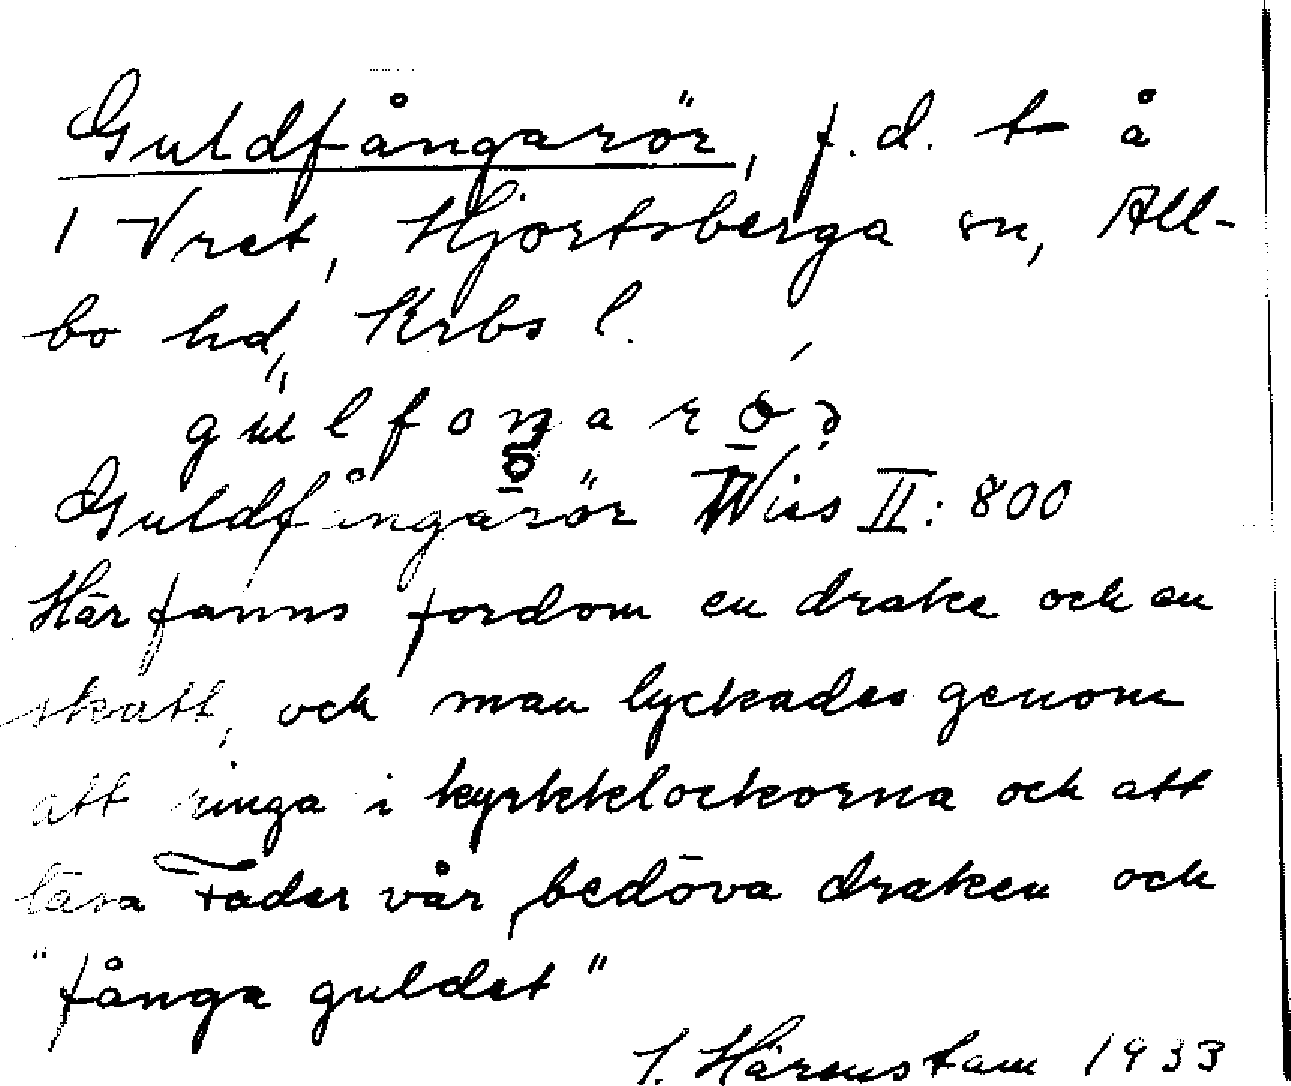 Guldfångarör, f.d. t å
1 Vret, Hjortsberga sn, All-
bo hd, Krbs l.
Guldfångarör Wies II: 800
Här fanns fordom en drake och en
skatt, och man lyckades genom
att ringa i kyrkklockorna och att
läsa Fader vår, bedöva draken och
"fånga guldet"
I. Härenstam 1933